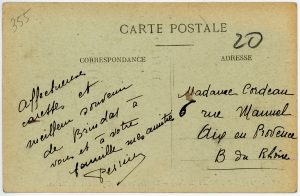 355
CARTE POSTALE
20
CORRESPONDANCE
ADRESSE
Affectueuse
caresses et
meilleur souvenir
de Brindas à
vous et à votre
famille mes amitiés
Madame Cordeau
6 rue Manuel
Aix en Provence
B du Rhône